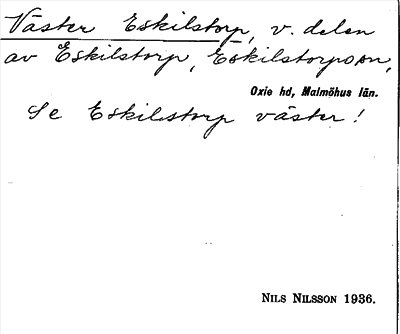 Väster Eskilstorp, v. delen
av Eskilstorp, Eskilstorpssn,
Oxie hd, Malmöhus län.
Se Eskilstorp väster!
NILS NILSSON 1936.